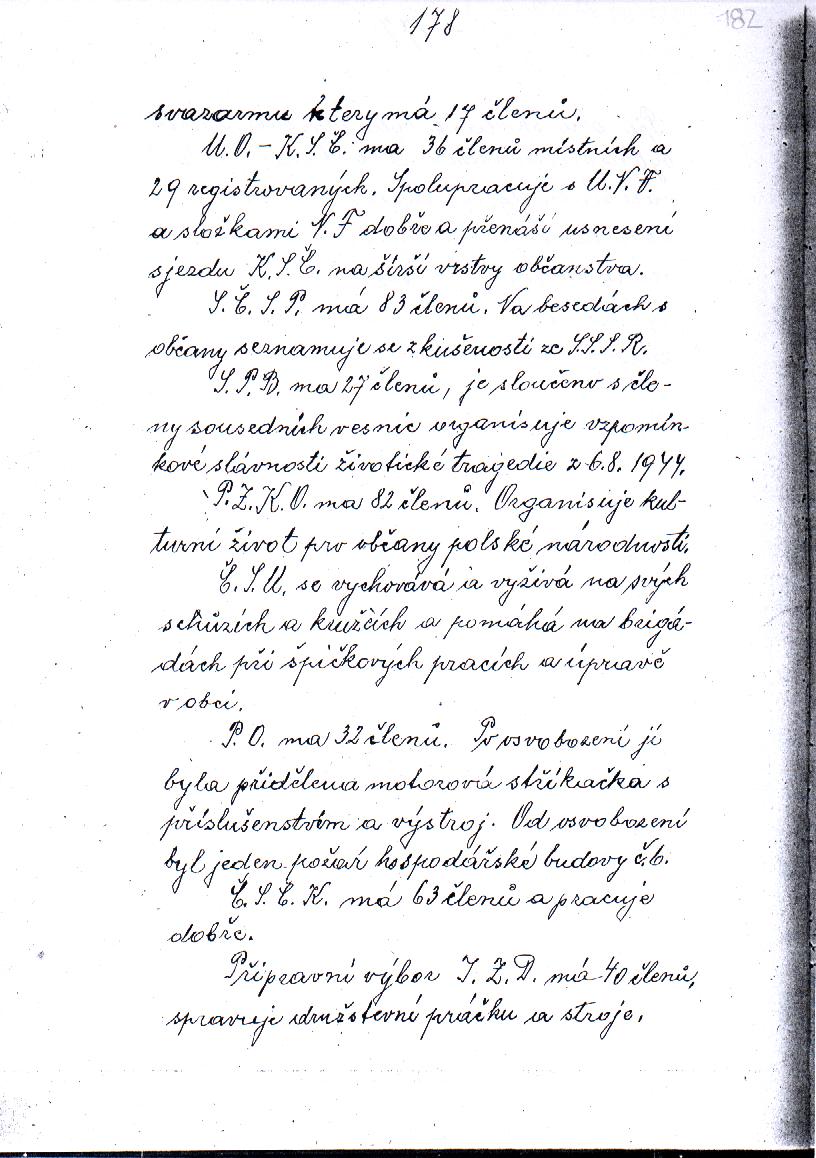 178
182
svazarmu který má 17 členů.
M.O. – K.S.Č. ma 36 členů místních a
29 registrovaných. Spolupracuje s M.N.V.
a složkami N.F dobře a přenáší usnesení
sjezdu K.S.Č. na širší vrstvy občanstva.
S.Č.S.P. má 83 členů. Na besedách s
občany seznamuje se zkušeností ze S.S.S.R.
S.P.B. ma 27 členů, je sloučeno s čle-
ny sousedních vesnic organisuje vzpomín-
kové slávnosti životické tragedie z 6.8. 1944.
P.Z.K.O. ma 82 členů. Organisuje kul-
turní život pro občany polské národnosti.
Č.S.M. se vychovává a vyžívá na svých
schůzích a kružcích a pomáhá na brigá-
dách při špičkových pracích a úpravě
v obci.
P.O. ma 32 členů. Po osvobození jí
byla přidělena motorová stříkačka s
příslušenstvím a výstroj. Od osvobození
byl jeden požár hospodářské budovy č.6.
Č.S.Č.K. má 63 členů a pracuje
dobře.
Připravní výbor J.Z.D. má 40 členů,
spravuje družstevní práčku a stroje.